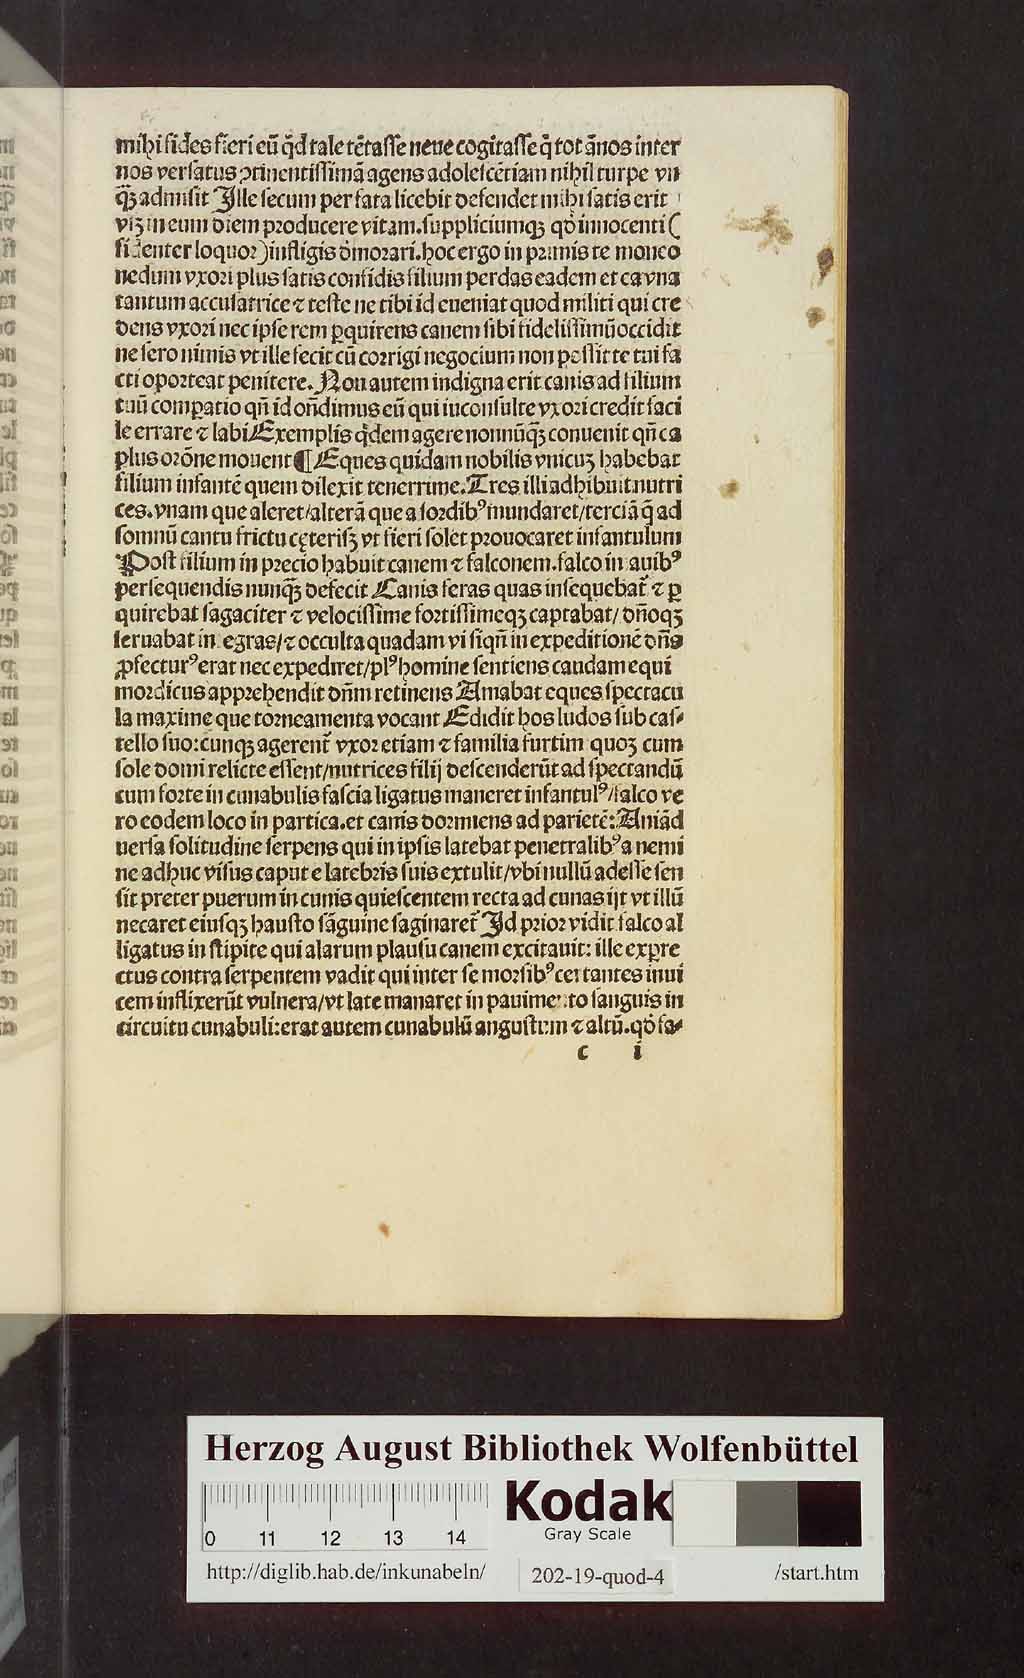 mihi fides fieri eū qd tale tētasse neue cogitasse q̄ tot ānos inter
nos versatus ꝯtinentissimā agens adolescētiam nihil turpe vn
q̄ꝫ admisit Ille secum per fata licebit defendet mihi satis erit
vſꝫ in eum diem producere vitam. suppliciumqꝫ qd̄ innocenti (
fidenter loquor) infligis dēmorari. hoc ergo in primis te moneo
nedum vxori plus satis confidis filium perdas eadem et ca vna
tantum accusatrice ⁊ teste ne tibi id eueniat quod militi qui cre
dens vxori nec ipse rem ꝑquirens canem sibi fidelissimū occidit
ne sero nimis vt ille fecit cū corrigi negocium non possit te tui fa
cti oporteat penitere. Non autem indigna erit canis ad filium
tuū comꝑatio qn̄ id on̄dimus eū qui inconsulte vxori credit faci
le errare ⁊ labi Exemplis qdem agere nonnūq̄ꝫ conuenit qn̄ ca
plus orōne mouent ¶ Eques quidam nobilis vnicuꝫ habebat
filium infantē quem dilexit tenerrime. Tres illi adhibuit nutri
ces. vnam que aleret/alterā que a sordibꝰ mundaret/terciā q̄ ad
somnū cantu frictu cęterisqꝫ vt fieri solet prouocaret infantulum
Post filium in precio habuit canem ⁊ falconem. falco in auibꝰ
persequendis nunq̄ꝫ defecit Canis feras quas insequebat̄ ⁊ ꝑ
quirebat sagaciter ⁊ velocissime fortissimeqꝫ captabat/ dn̄oqꝫ
seruabat in egras/⁊ occulta quadam vi siqn̄ in expeditionē dn̄s
ꝓfecturꝰ erat nec expediret/plꝰ homine sentiens caudam equi
mordicus apprehendit dn̄m retinens Amabat eques spectacu
la maxime que torneamenta vocant Edidit hos ludos sub cas⸗
tello suo: cunqꝫ agerent̄ vxor etiam ⁊ familia furtim quoꝫ cum
sole domi relicte essent/nutrices filij descenderūt ad spectandū
cum forte in cunabulis fascia ligatus maneret infantulꝰ/falco ve
ro eodem loco in partica. et canis dormiens ad parietē: Aniād
uersa solitudine serpens qui in ipsis latebat penetralibꝰ a nemi
ne adhuc visus caput e latebris suis extulit/vbi nullū adesse sen
sit preter puerum in cunis quiescentem recta ad cunas ijt vt illū
necaret eiusqꝫ hausto sāguine saginaret̄ Id prior vidit falco al
ligatus in stipite qui alarum plausu canem excitauit: ille exꝑre
ctus contra serpentem vadit qui inter se morsibꝰ certantes inui
cem inflixerūt vulnera/vt late manaret in pauimento sanguis in
circuitu cunabuli: erat autem cunabulū angustum ⁊ altū. qd̄ fa⸗
c i
Herzog August Bibliothek Wolfenbüttel
0 11 12 13 14
Kodak
Gray Scale
http://diglib.hab.de/inkunabeln/ 202-19-quod-4 /start.htm